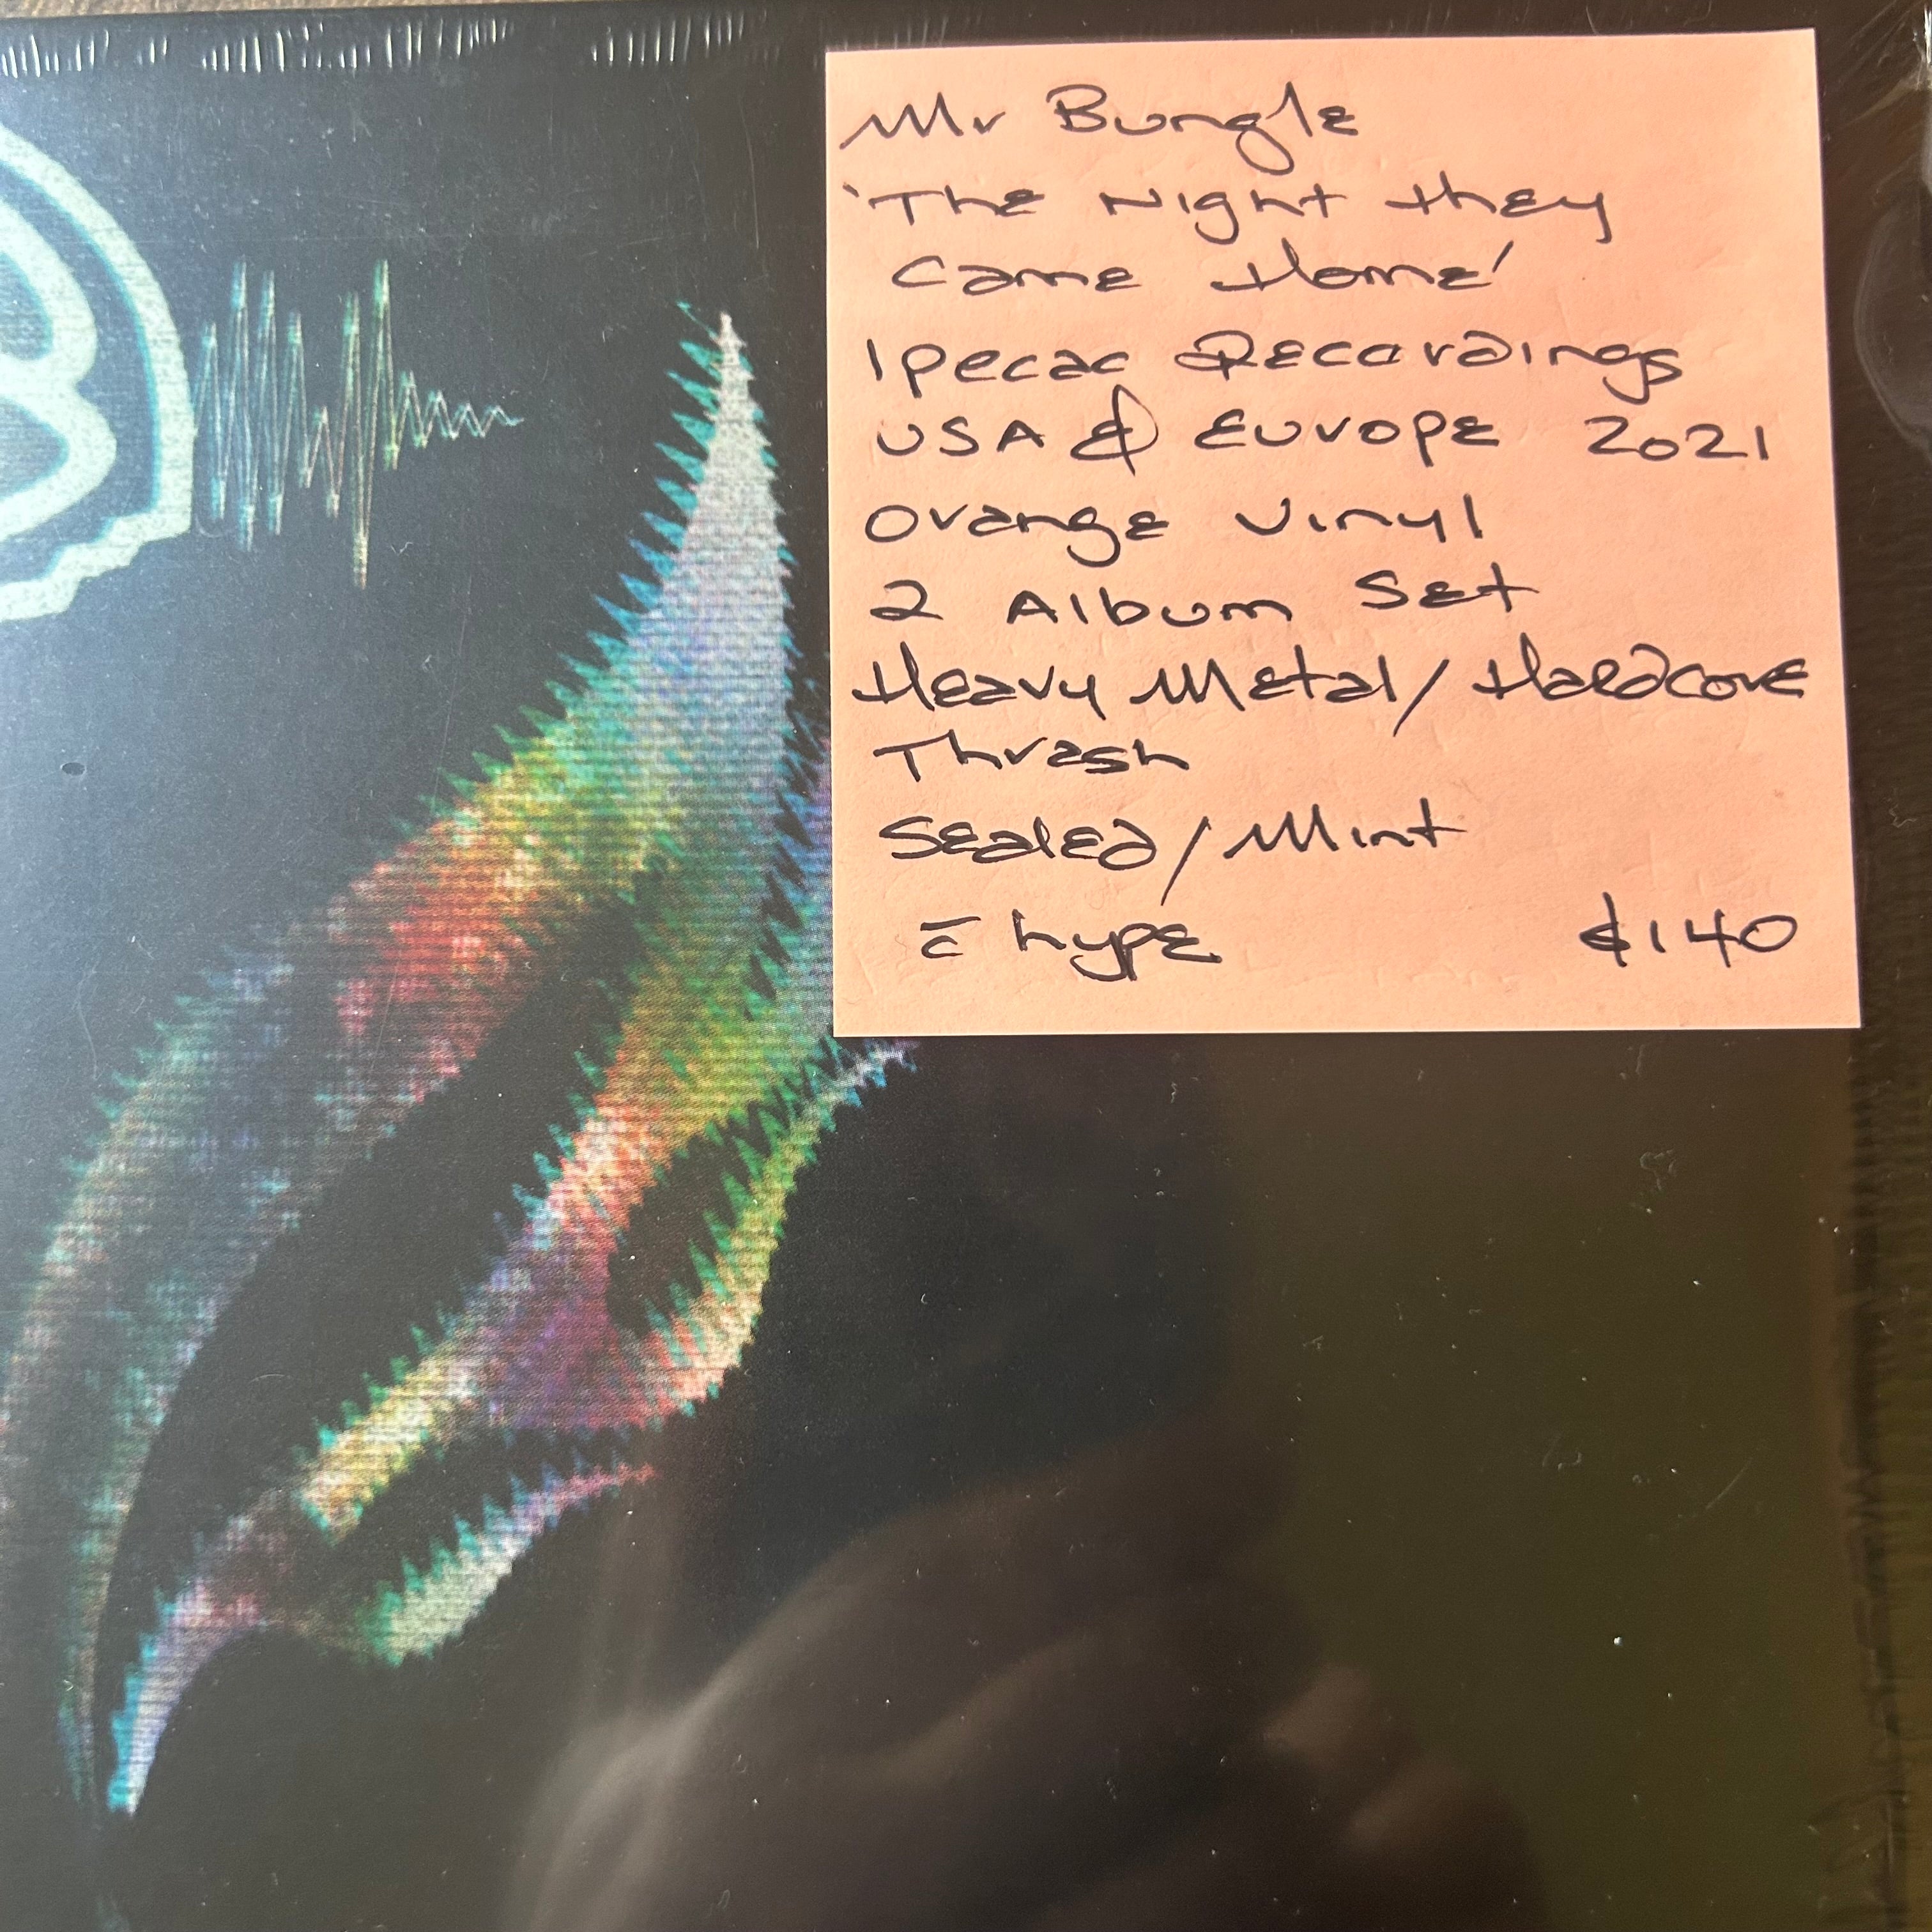 Mr Bungle
'The Night They
Came Home'
Ipecac Recordings
USA & Europe 2021
Orange Vinyl
2 Album Set
Heavy Metal/Hardcore
Thrash
Sealed/Mint
c̄ hype $140